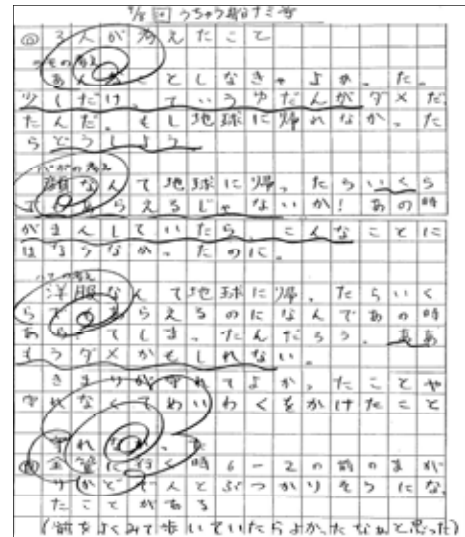 9/8 回 うちゅう船ナミ号
◎ 3人が考えたこと
の考え
あんなことしなきゃよかった。
少しだけっていうゆだんがダメだっ
たんだ。もし地球に帰れなかった
らどうしよう
の考え
なんて地球に帰ったらいくら
でもらえるじゃないか!あの時
がまんしていたら、こんなことに
はならなかったのに。
の考え
洋服なんて地球に帰ったらいく
らでももらえるのになんであの時
あらってしまったんだろう。ああ
もうダメかもしれない。
きまりがなれてよかったことや
守れなくてめいわくをかけたこと
守れない
に行く時6-2の前のまが
りかどでんとぶつかりそうになっ
たことがある
(前をよくみて歩いていたらよかったなぁと思った)